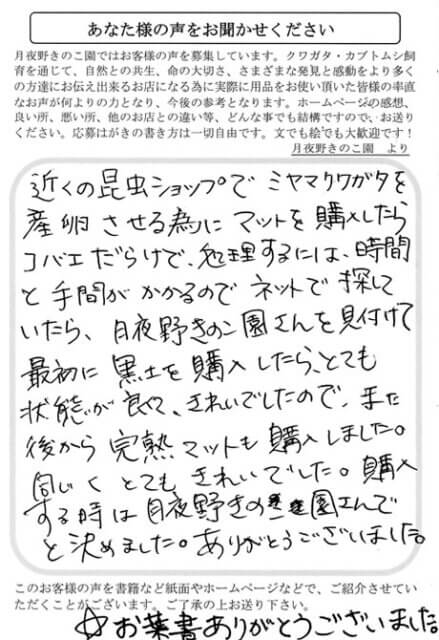 あなた様の声をお聞かせください
月夜野きのこ園ではお客様の声を募集しています。クワガタ・カブトムシ飼
育を通じて、自然との共生、命の大切さ、さまざまな発見と感動をより多く
の方達にお伝え出来るお店になる為に実際に用品をお使い頂いた皆様の率直
なお声が何よりの力となり、今後の参考となります。ホームページの感想、
良い所、悪い所、他のお店との違い等、どんな事でも結構ですので、お送り
ください。応募はがきの書き方は一切自由です。文でも絵でも大歓迎です！
月夜野きのこ園　より
近くの昆虫ショップで ミヤマクワガタを
産卵 させる為に マットを 購入したら
コバエだらけで、処理するには、時間
と 手間が かかるので ネットで 探して
いたら、月夜野きのこ園さんを見付けて
最初に 黒土を 購入したら、とても
状態が 良く、きれいでしたので、また
後から 完熟マットも 購入しました。
同じく とても きれいでした。購入
する時は 月夜野きのこ園さんで
と決めました。ありがとうございました。
このお客様の声を書籍など紙面やホームページなどで、ご紹介させてい
ただくことがございます。ご了承の上お送り下さい。
☆お葉書ありがとうございました